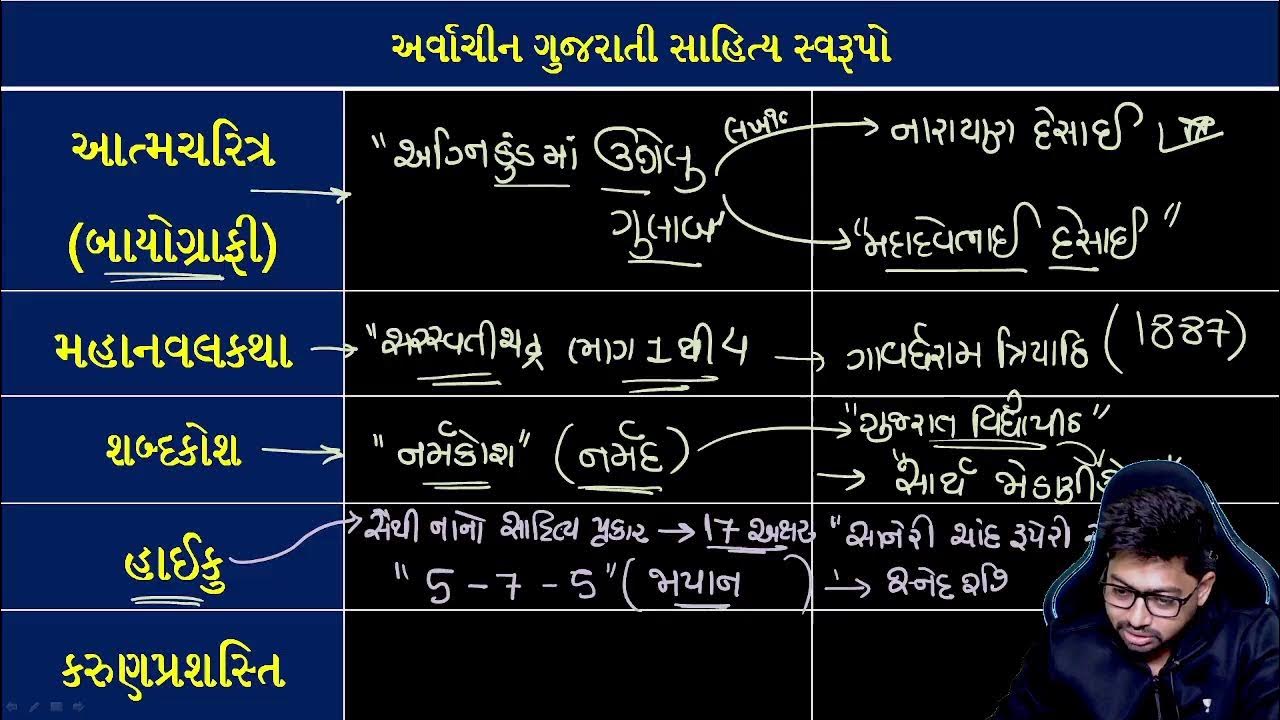 અર્વાચીન ગુજરાતી સાહિત્ય સ્વરૂપો
આત્મચરિત્ર
(બાયોગ્રાફી)
"અગ્નિકુંડમાં ઉગેલુ
ગુલાબ"
લખીત
નારાયણ દેસાઈ
"મહાદેવભાઈ દેસાઈ"
મહાનવલકથા
"સરસ્વતીચંદ્ર ભાગ 1 થી 4
ગોવર્ધરામ ત્રિપાઠિ (1887)
શબ્દકોશ
"નર્મકોશ" (નર્મદ)
"ગુજરાત વિદ્યાપીઠ"
"સાર્થ જોડણી
હાઈકુ
સૌથી નાનો સાહિત્ય પ્રકાર → 17 અક્ષર
"5-7-5" (જાપાન)
"સોનેરી ચાંદ રૂપેરી
સ્નેહ રશ્મિ
કરુણપ્રશસ્તિ